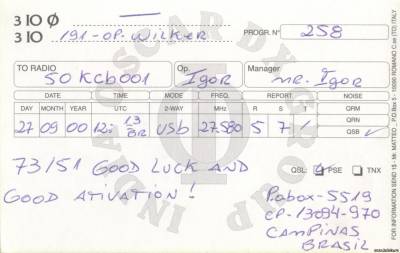 3IOØ
3IO 191-OP. WILKER PROGR. N° 258
TO RADIO Op. Manager
50KCB001 Igor mr. Igor
DATE TIME MODE FREQ. REPORT NOISE
DAY MONTH YEAR UTC 2-WAY MHz R S T QRM
QRN
27 09 00 12:13 BR USB 27.580 5 7 / QSB ✓
73/51 GOOD LUCK AND QSL: PSE TNX
GOOD ATIVATION!
P.O.BOX-5519
CP-13094-970
CAMPINAS
BRASIL
INDIA OSCAR DX GROUP
FOR INFORMATION SEND 1$ - Mr. MATTEO - P.O.Box 5 - 10090 ROMANO C.se (TO) ITALY